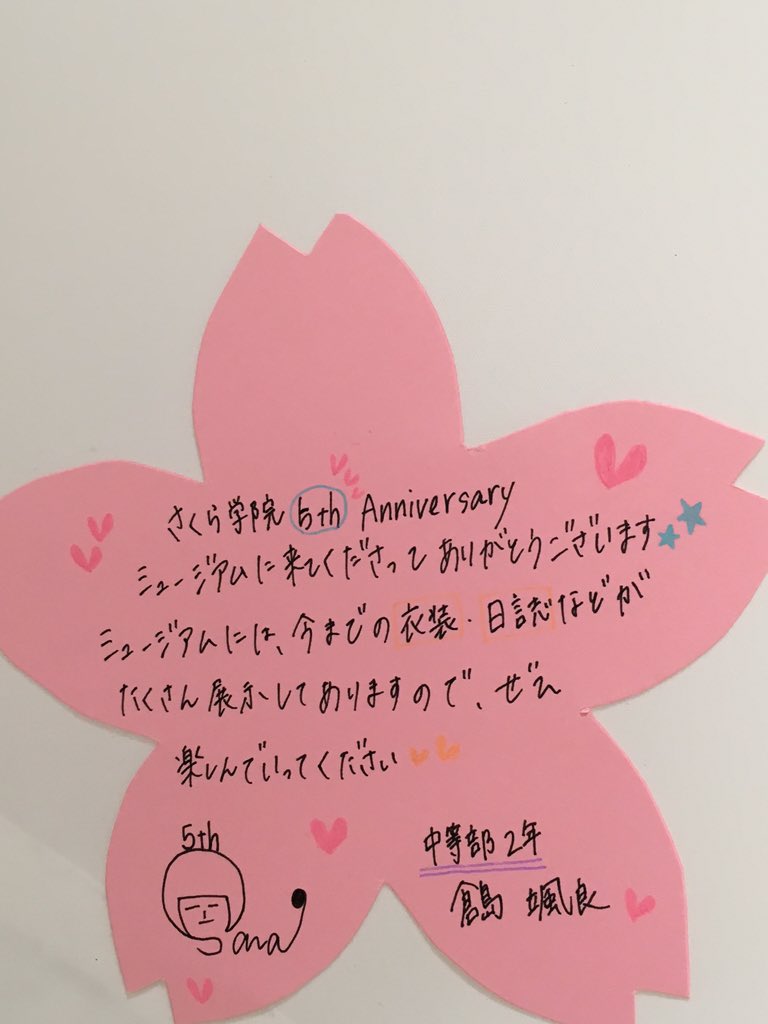 さくら学院 5th Anniversary
ミュージアムに来てくださって ありがとうございます
ミュージアムには、今までの衣装・日誌などが
たくさん展示してありますので、ぜひ
楽しんでいってください
5th
Sara
中等部2年
倉島 颯良